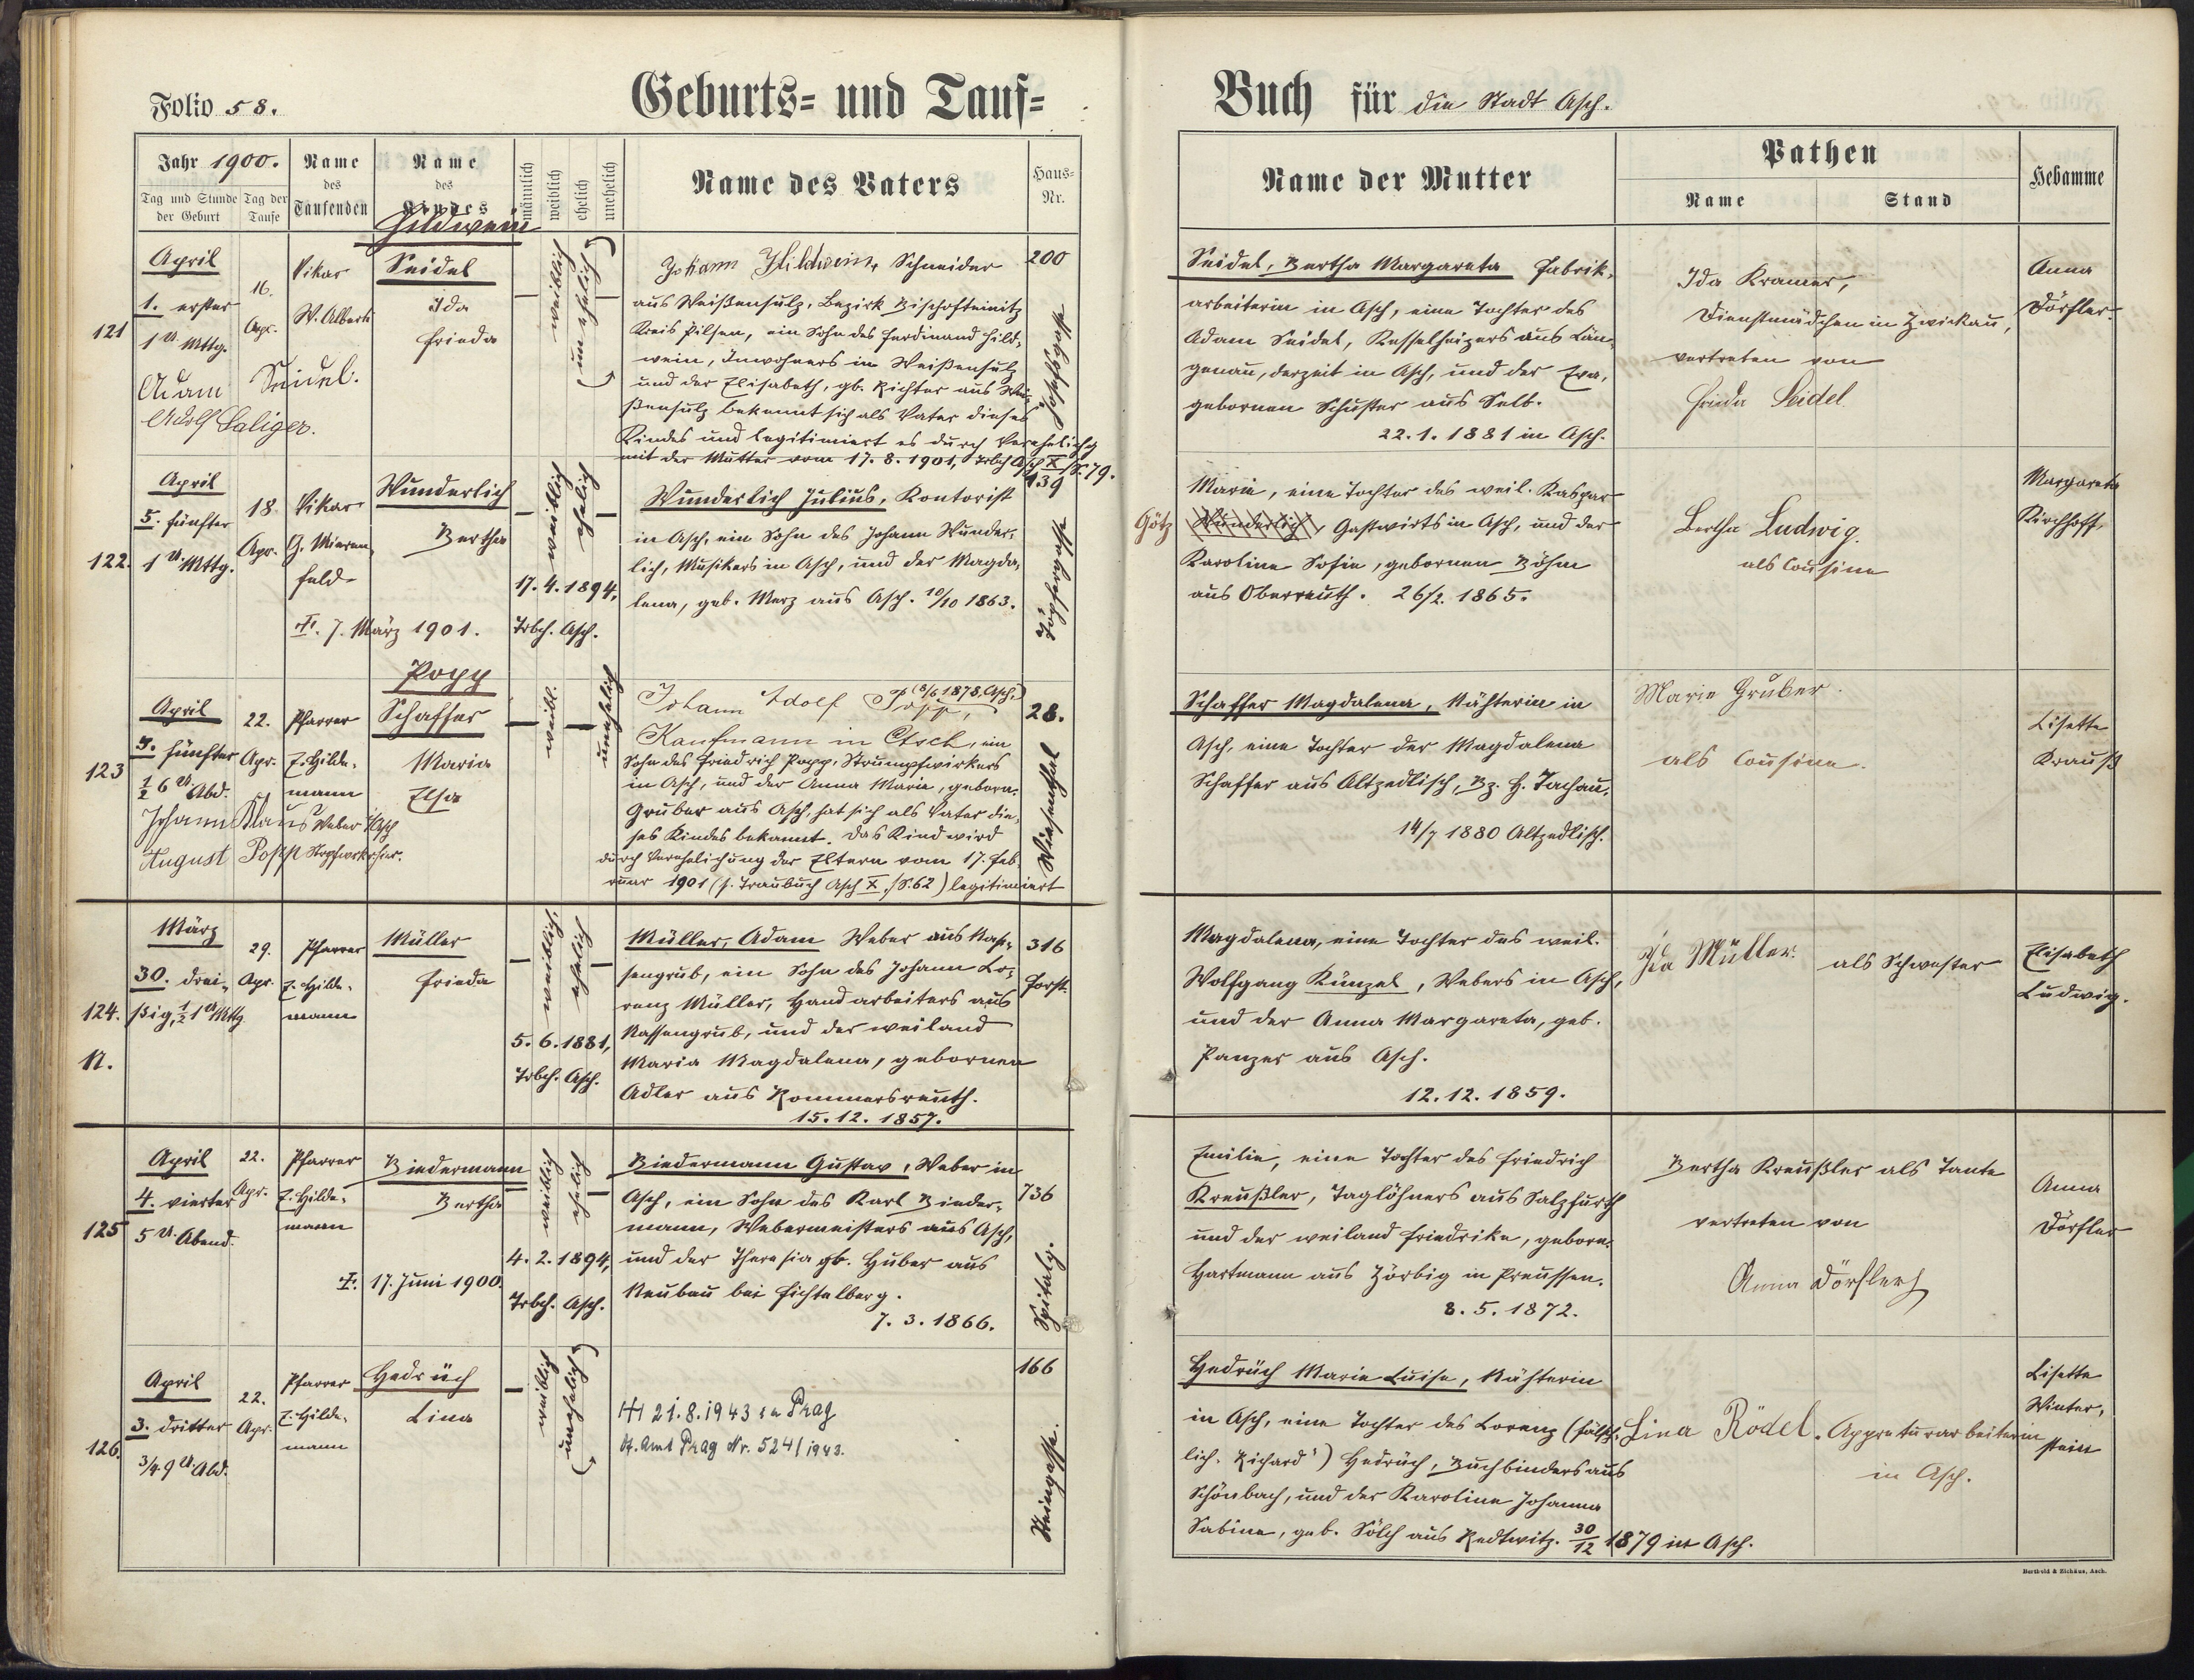 Folio 58.
Geburts= und Tauf=
Jahr 1900.
Tag und Stunde der Geburt
Tag der Taufe
Name des Taufenden
Name des Kindes
männlich
weiblich
ehelich
unehelich
Name des Vaters
Haus=Nr.
121
April
1. erster
1 U. Mttg.
16.
Apr.
Vikar
W. Alberti
Hildwein
Seidel
Ida
Frieda
Adam Seidel.
Adolf Saliger.
weiblich
(unehelich)
Johann Hildwein, Schneider
aus Weißensulz, Bezirk Bischofteinitz
Kreis Pilsen, ein Sohn des Ferdinand Hild=
wein, Inwohners in Weißensulz
und der Elisabeth, gb. Richter aus Wei=
ßensulz bekennt sich als Vater dieses
Kindes und legitimiert es durch Verehelichg
mit der Mutter vom 17. 8. 1901, Trbch Asch X/S. 79.
200
122.
April
5. fünfter
1 U. Mttg.
18.
Apr.
Vikar
G. Mieren=
feld
Wunderlich
Bertha
†. 7. März 1901.
weiblich
ehelich
17. 4. 1894,
Trbch. Asch.
Wunderlich Julius, Kontorist
in Asch, ein Sohn des Johann Wunder=
lich, Musikers in Asch, und der Magda=
lena, geb. Merz aus Asch. 10/10 1863.
139
Töpfergasse
123
April
5. fünfter
½ 6 U. Abd.
22.
Apr.
Pfarrer
E. Hilde=
mann
Popp
Schaffer
Maria
Elsa
Johann Klaus Weber
August Popp
weibl.
unehelich
Johann Adolf Popp, (8/6 1878. Asch.)
Kaufmann in Asch, ein
Sohn des Friedrich Popp, Strumpfwirkers
in Asch, und der Anna Maria, geborn.
Gruber aus Asch, hat sich als Vater die=
ses Kindes bekannt. Das Kind wird
durch Verehelichung der Eltern vom 17. Feb=
ruar 1901 (s. Traubuch Asch X./S. 62) legitimiert
28.
Wiesenthal
124.
N.
März
30. drei=
ßig, ½ 1 U Mttg
29.
Apr.
Pfarrer
E. Hilde=
mann
Müller
Frieda
weiblich,
ehelich
5. 6. 1881,
Trbch. Asch.
Müller, Adam Weber aus Nas=
sengrub, ein Sohn des Johann Lo=
renz Müller, Handarbeiters aus
Nassengrub, und der weiland
Maria Magdalena, gebornen
Adler aus Rommersreuth.
15. 12. 1857.
316
Forst.
125
April
4. vierter
5 U. Abend.
22.
Apr.
Pfarrer
E. Hilde=
mann
Biedermann
Bertha
†. 17. Juni 1900.
weiblich
ehelich
4. 2. 1894,
Trbch. Asch.
Biedermann Gustav, Weber in
Asch, ein Sohn des Karl Bieder=
mann, Webermeisters aus Asch,
und der Theresia gb. Huber aus
Neubau bei Fichtelberg.
7. 3. 1866.
736
Spitalg.
126.
April
3. dritter
3/4 9 U. Abd.
22.
Apr.
Pfarrer
E. Hilde=
mann
Hedrüch
Lina
weiblich
(unehelich)
21. 8. 1943 in Prag
St. Amt Prag Nr. 5241/1943.
166
Steingasse.
Buch für die Stadt Asch.
Name der Mutter
Pathen
Name
Stand
Hebamme
Seidel, Bertha Margareta Fabrik=
arbeiterin in Asch, eine Tochter des
Adam Seidel, Kesselheizers aus Län=
genau, derzeit in Asch, und der Eva,
gebornen Schuster aus Selb.
22. 1. 1881 in Asch.
Ida Kramer,
Dienstmädchen in Zwickau,
vertreten von
Frieda Seidel
Anna
Dörfler.
Maria, eine Tochter des weil. Kaspar
Götz Wunderlich, Gastwirts in Asch, und der
Karoline Sofie, gebornen Böhm
aus Oberreuth. 26/2. 1865.
Bertha Ludwig.
als Cousine
Margareta
Kirchhoff.
Schaffer Magdalena, Nähterin in
Asch, eine Tochter der Magdalena
Schaffer aus Altzedlisch, Bz. H. Tachau.
14/7 1880 Altzedlisch.
Marie Gruber.
als Cousine.
Lisette
Krauß
Magdalena, eine Tochter des weil.
Wolfgang Künzel, Webers in Asch,
und der Anna Margareta, geb.
Panzer aus Asch.
12. 12. 1859.
Ida Müller.
als Schwester
Elisabeth
Ludwig.
Emilie, eine Tochter des Friedrich
Kreußler, Taglöhners aus Salzfurth
und der weiland Friedrike, geborn.
Hartmann aus Zörbig in Preussen.
8. 5. 1872.
Bertha Kreußler als Tante
vertreten von
Anna Dörfler
Anna
Dörfler
Hedrüch Marie Luise, Nähterin
in Asch, eine Tochter des Lorenz (fälsch=
lich „Richard“) Hedrüch, Buchbinders aus
Schönbach, und der Karoline Johanna
Sabine, geb. Sölch aus Redwitz. 30/12 1879 in Asch.
Lina Rödel. Appreturarbeiterin
in Asch.
Lisette
Winter=
stein
Berthold & Zichäus, Asch.